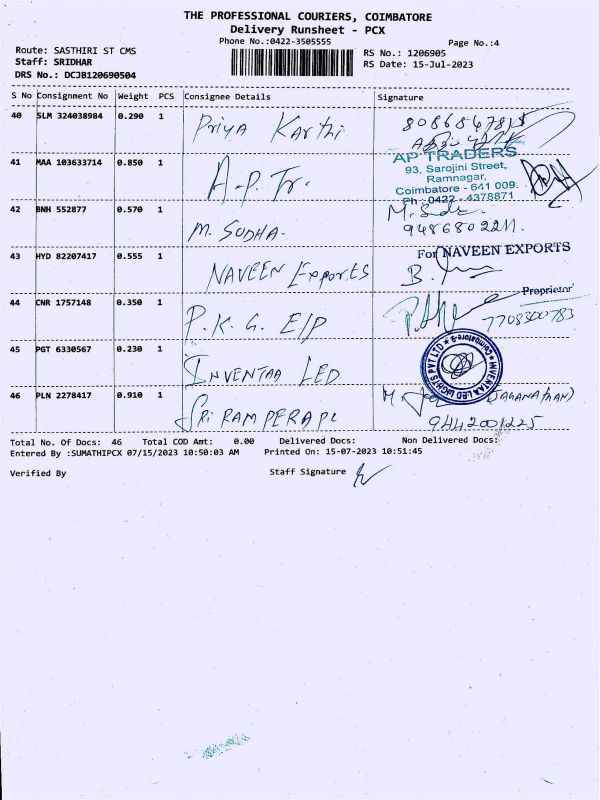 THE PROFESSIONAL COURIERS, COIMBATORE
Delivery Runsheet - PCX
Phone No.:0422-3505555
Page No.:4
Route: SASTHIRI ST CMS
RS No.: 1206905
Staff: SRIDHAR
RS Date: 15-Jul-2023
DRS No.: DCJB120690504
S No Consignment No Weight PCS Consignee Details Signature
40 SLM 324038984 0.290 1 Priya Karthi
41 MAA 103633714 0.850 1 A.P. Tr.
AP TRADERS
93, Sarojini Street,
Ramnagar,
Coimbatore - 641 009.
Ph : 0422 - 4378871
42 BNH 552877 0.570 1 M. SUDHA.
9486802211.
43 HYD 82207417 0.555 1 NAVEEN Exports
For NAVEEN EXPORTS
Proprietor
44 CNR 1757148 0.350 1 P.K.G. E/P
7708300783
45 PGT 6330567 0.230 1 INVENTAA LED
INVENTAA LED LIGHTS PVT LTD ★ Coimbatore-9 ★
46 PLN 2278417 0.910 1 SRI RAM PERAPL
(JAGANATHAN)
9442001225
Total No. Of Docs: 46 Total COD Amt: 0.00 Delivered Docs: Non Delivered Docs:
Entered By :SUMATHIPCX 07/15/2023 10:50:03 AM Printed On: 15-07-2023 10:51:45
Verified By Staff Signature